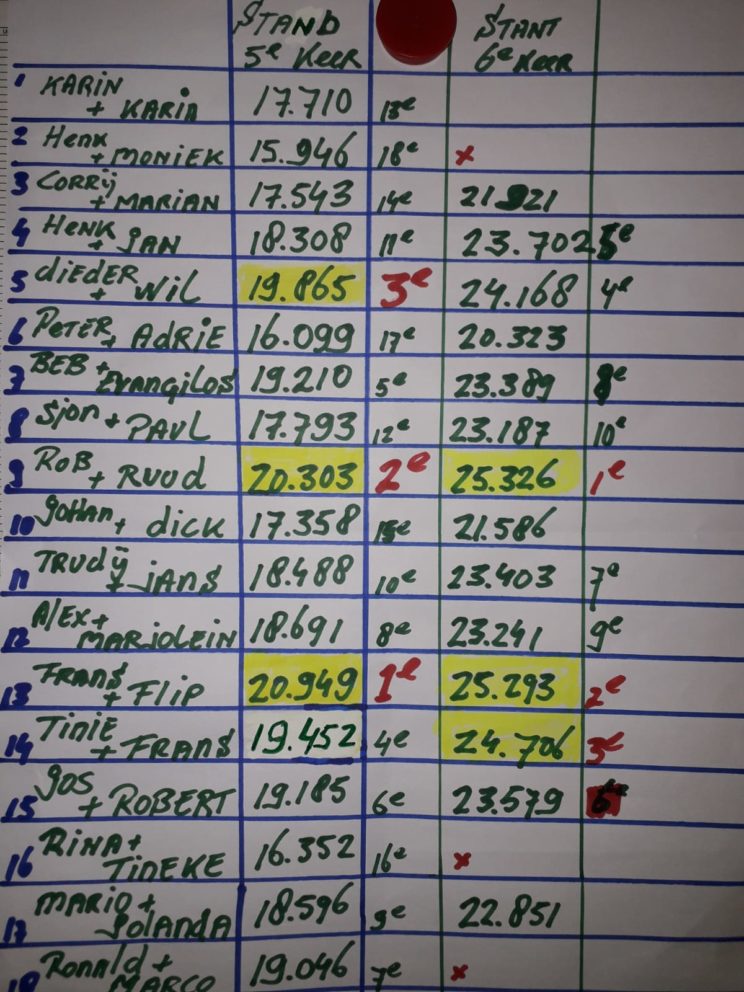 STAND STANT
5e KEER 6e KEER
1 KARIN
+ KARIN 17.710 13e
2 Henk
+ MONIEK 15.946 18e x
3 CORRIJ
+ MARIAN 17.543 14e 21.921
4 HENK
+ JAN 18.308 11e 23.702 5e
5 diEDER
+ WiL 19.865 3e 24.168 4e
6 PETER
+ ADRiE 16.099 17e 20.323
7 BEB +
EVANGiLOS 19.210 5e 23.389 8e
8 Sjon + PAUL 17.793 12e 23.187 10e
9 ROB
+ RUUd 20.303 2e 25.326 1e
10 JOHAN + dick 17.358 15e 21.586
11 TRUdij
+ jANS 18.488 10e 23.403 7e
12 A/Ex +
MARjOLEiN 18.691 8e 23.241 9e
13 FRANS
+ FLiP 20.949 1e 25.293 2e
14 TiNiE
+ FRANS 19.452 4e 24.706 3e
15 JOS
+ ROBERT 19.185 6e 23.579 6e
16 RiNA +
TiNEKE 16.352 16e x
17 MARiO +
JOLANDA 18.596 9e 22.851
18 Ronald +
MARCO 19.046 7e x